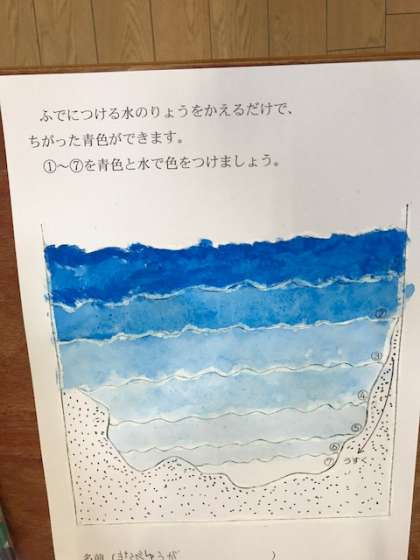 ふでにつける水のりょうをかえるだけで、
ちがった青色ができます。
①～⑦を青色と水で色をつけましょう。
②
③
④
⑤
⑥
⑦ うすく
名前（　　）